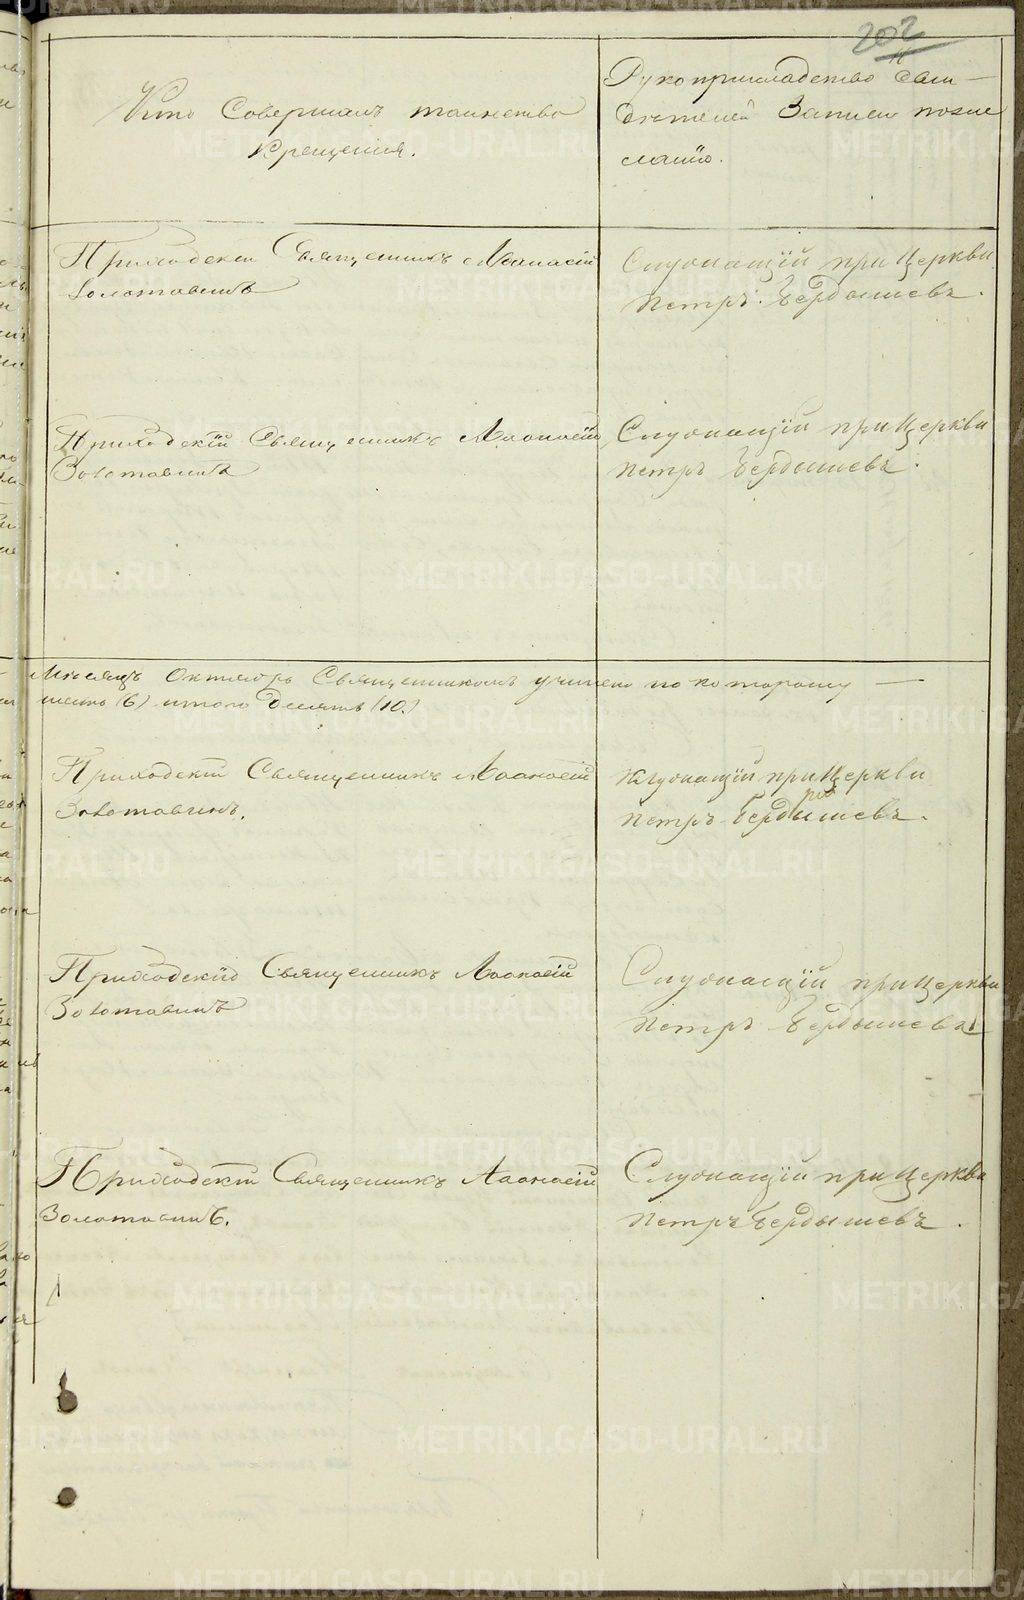 202
Кто Совершалъ таинство
Крещенія.
Рукоприкладство Сви-
дѣтелей Записи по же
ланію.
Приходскій Священникъ Афанасій
Золотавинъ
Служащій при Церкви
Петръ Бердышевъ.
Приходскій Священникъ Афанасій
Золотавинъ
Служащій при Церкви
Петръ Бердышевъ.
Мѣсяцъ Октябрь Священникомъ по которому —
(6) итого Десять (10.)
Приходскій Священникъ Афанасій
Золотавинъ.
Служащій при Церкви
Петръ Бердышевъ.
Приходскій Священникъ Афанасій
Золотавинъ
Служащій при Церкви
Петръ Бердышевъ
Приходскій Священникъ Афанасій
Золотавинъ.
Служащій при Церкви
Петръ Бердышевъ.
METRIKI.GASO-URAL.RU